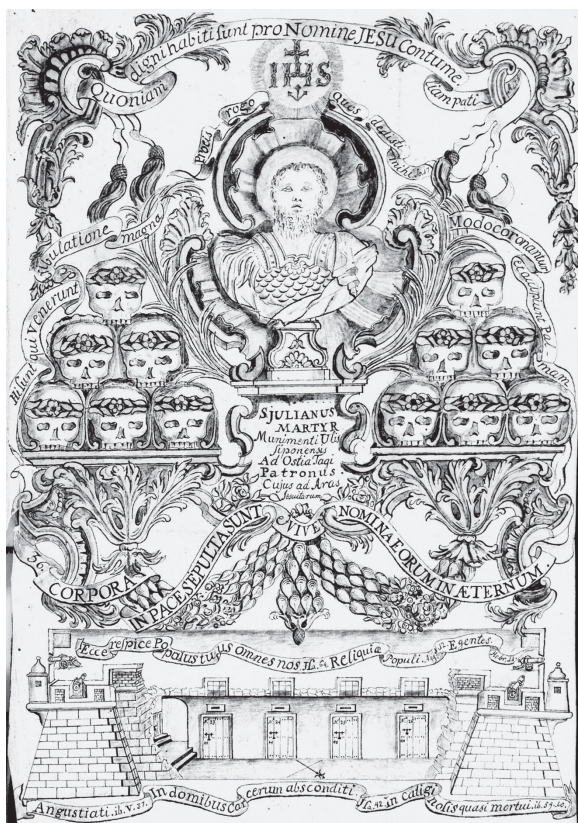 Quoniam digni habiti sunt pro Nomine JESU Contume liam pati
IHS
quos dedisti
Hi sunt qui Venerunt
bulatione magna
Modo coronantur
et accipiunt Pal
mam
SJULIANUS
MARTYR
Munimenti Ulis
siponensis
Ad Ostia Tagi
Patronus
Cujus ad Aras
Jesuitarum
36. CORPORA IN PACE SEPULTA SUNT & VIVE NT NOMINA EORUM IN ÆTERNUM.
Ecce respice Populus tuus Omnes nos Js. 64. Reliquiæ Populi. Egentes.
Angustiati. ib. v. 37. In domibus Carcerum absconditi. Js. 42. in caligi nosis quasi mortui. ib. 59. 10.